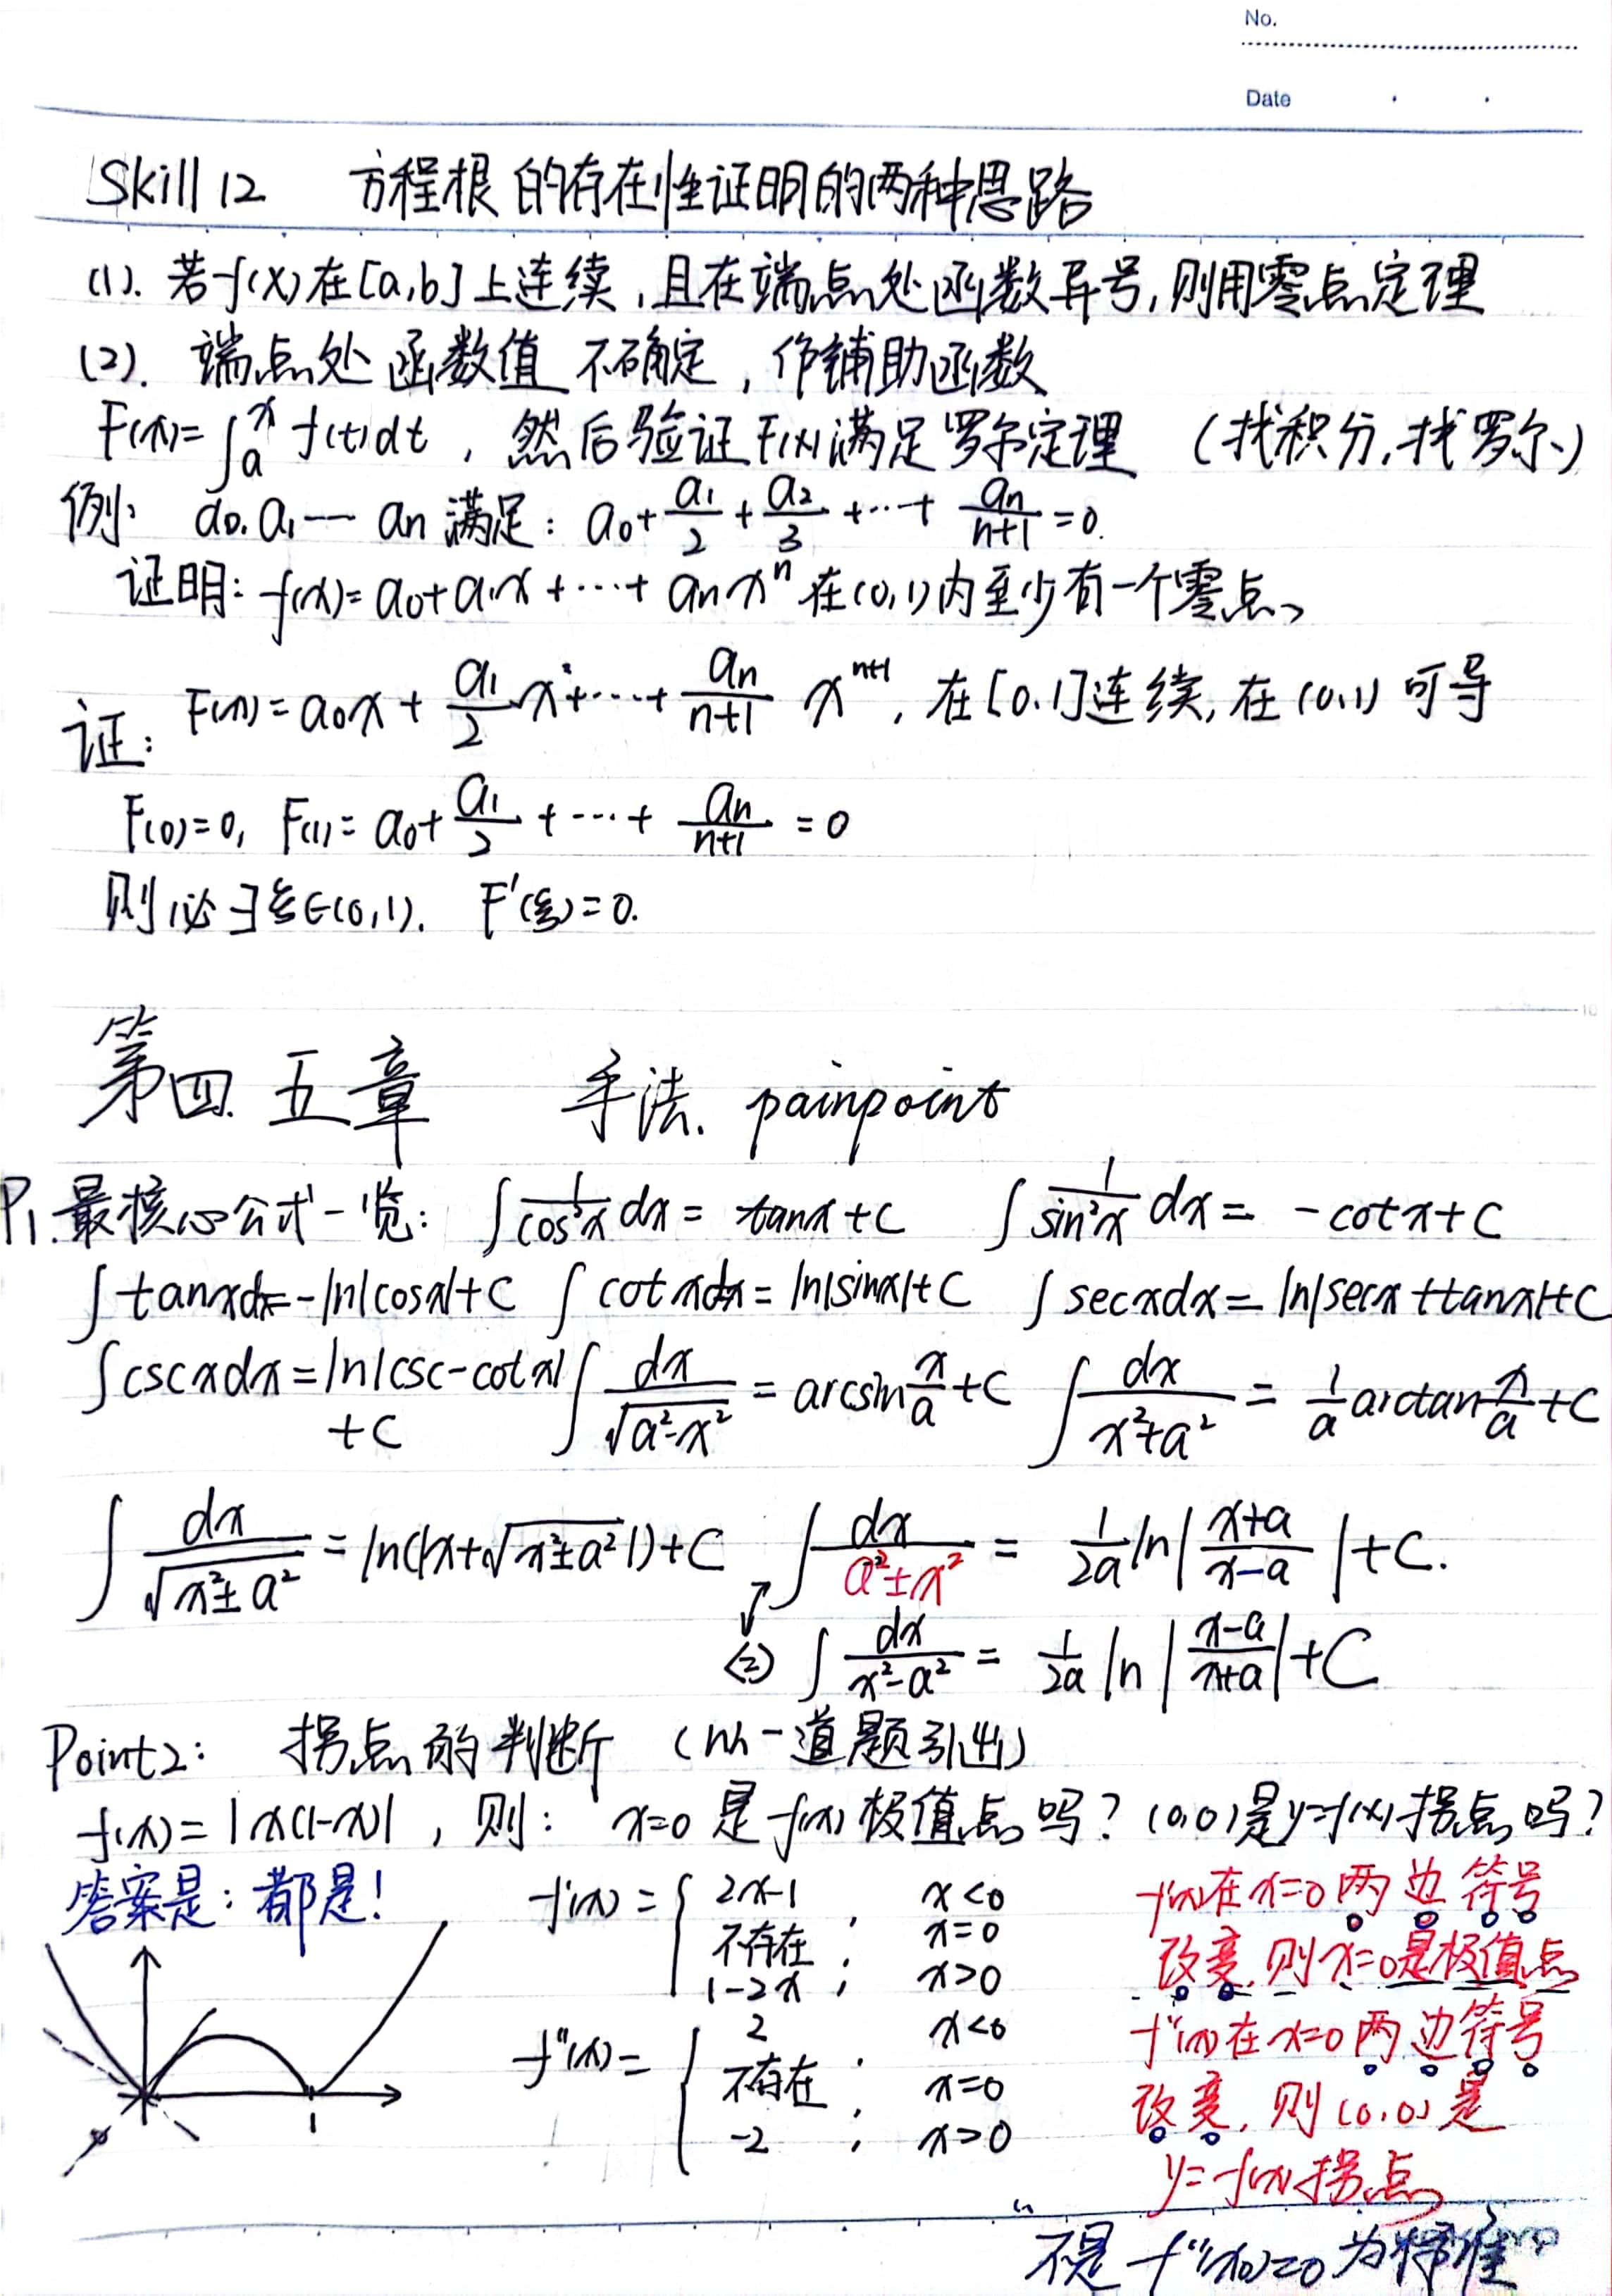 No.
Date
Skill 12 方程根的存在性证明的两种思路
(1). 若f(x)在[a,b]上连续,且在端点处函数异号,则用零点定理
(2). 端点处函数值不确定,作辅助函数
F(x)=∫ₐˣ f(t)dt ,然后验证F(x)满足罗尔定理 (找积分,找罗尔)
例: a₀.a₁—aₙ满足: a₀+a₁/2+a₂/3+…+aₙ/(n+1)=0.
证明: f(x)=a₀+a₁x+…+aₙxⁿ在(0,1)内至少有一个零点、
证: F(x)=a₀x+a₁/2 x²+…+aₙ/(n+1) xⁿ⁺¹, 在[0.1]连续,在(0,1)可导
F(0)=0, F(1)=a₀+a₁/2+…+aₙ/(n+1)=0
则必∃ξ∈(0,1). F'(ξ)=0.
第四.五章 手法. painpoint
P₁.最核心公式一览: ∫1/cos²x dx=tanx+C ∫1/sin²x dx=-cotx+C
∫tanxdx=-ln|cosx|+C ∫cotxdx=ln|sinx|+C ∫secxdx=ln|secx+tanx|+C
∫cscxdx=ln|csc-cotx|+C ∫dx/√(a²-x²)=arcsin x/a+C ∫dx/(x²+a²)=1/a arctan x/a+C
∫dx/√(x²±a²)=ln(|x+√(x²±a²)|)+C ∫dx/(a²±x²)=1/2a ln|(x+a)/(x-a)|+C.
⇔ ∫dx/(x²-a²)=1/2a ln|(x-a)/(x+a)|+C
Point2: 拐点的判断 (从一道题引出)
f(x)=|x(1-x)|,则: x=0是f(x)极值点吗? (0,0)是y=f(x)拐点吗?
答案是:都是!
f'(x)={2x-1, x<0
不存在; x=0
1-2x; x>0
f'(x)在x=0两边符号
改变,则x=0是极值点
f"(x)={2 x<0
不存在; x=0
-2; x>0
f"(x)在x=0两边符号
改变,则(0,0)是
y=f(x)拐点
1
不是f"(x₀)=0为标准